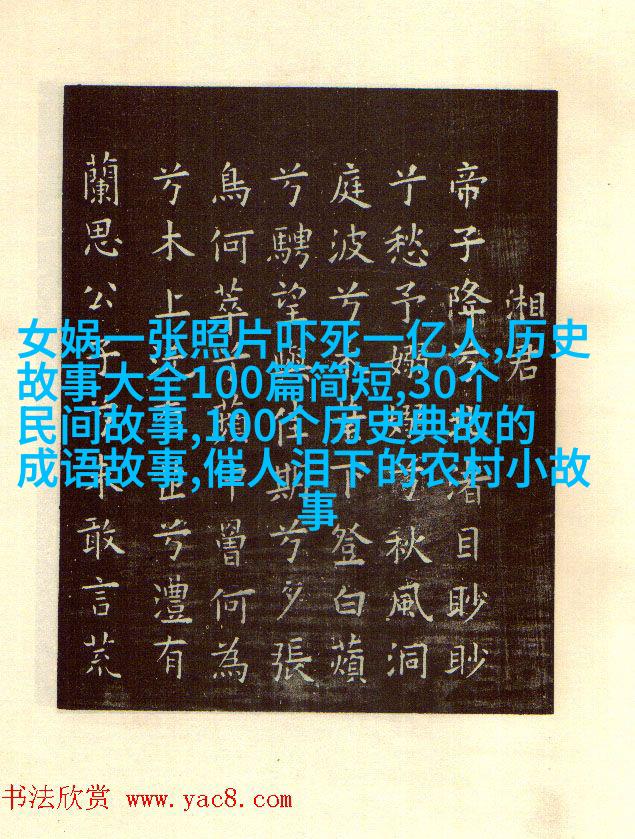 湘君
帝子降兮北渚目眇眇
兮愁予嫋嫋兮秋風洞
庭波兮木葉下登白蘋
兮騁望與佳期兮夕張
鳥何萃兮蘋中罾何為
兮木上沅有芷兮澧有
蘭思公子兮未敢言荒
女娲一张照片吓死一亿人,历史
故事大全100篇简短,30个
民间故事,100个历史典故的
成语故事,催人泪下的农村小故
事
书法欣赏 www.yac8.com